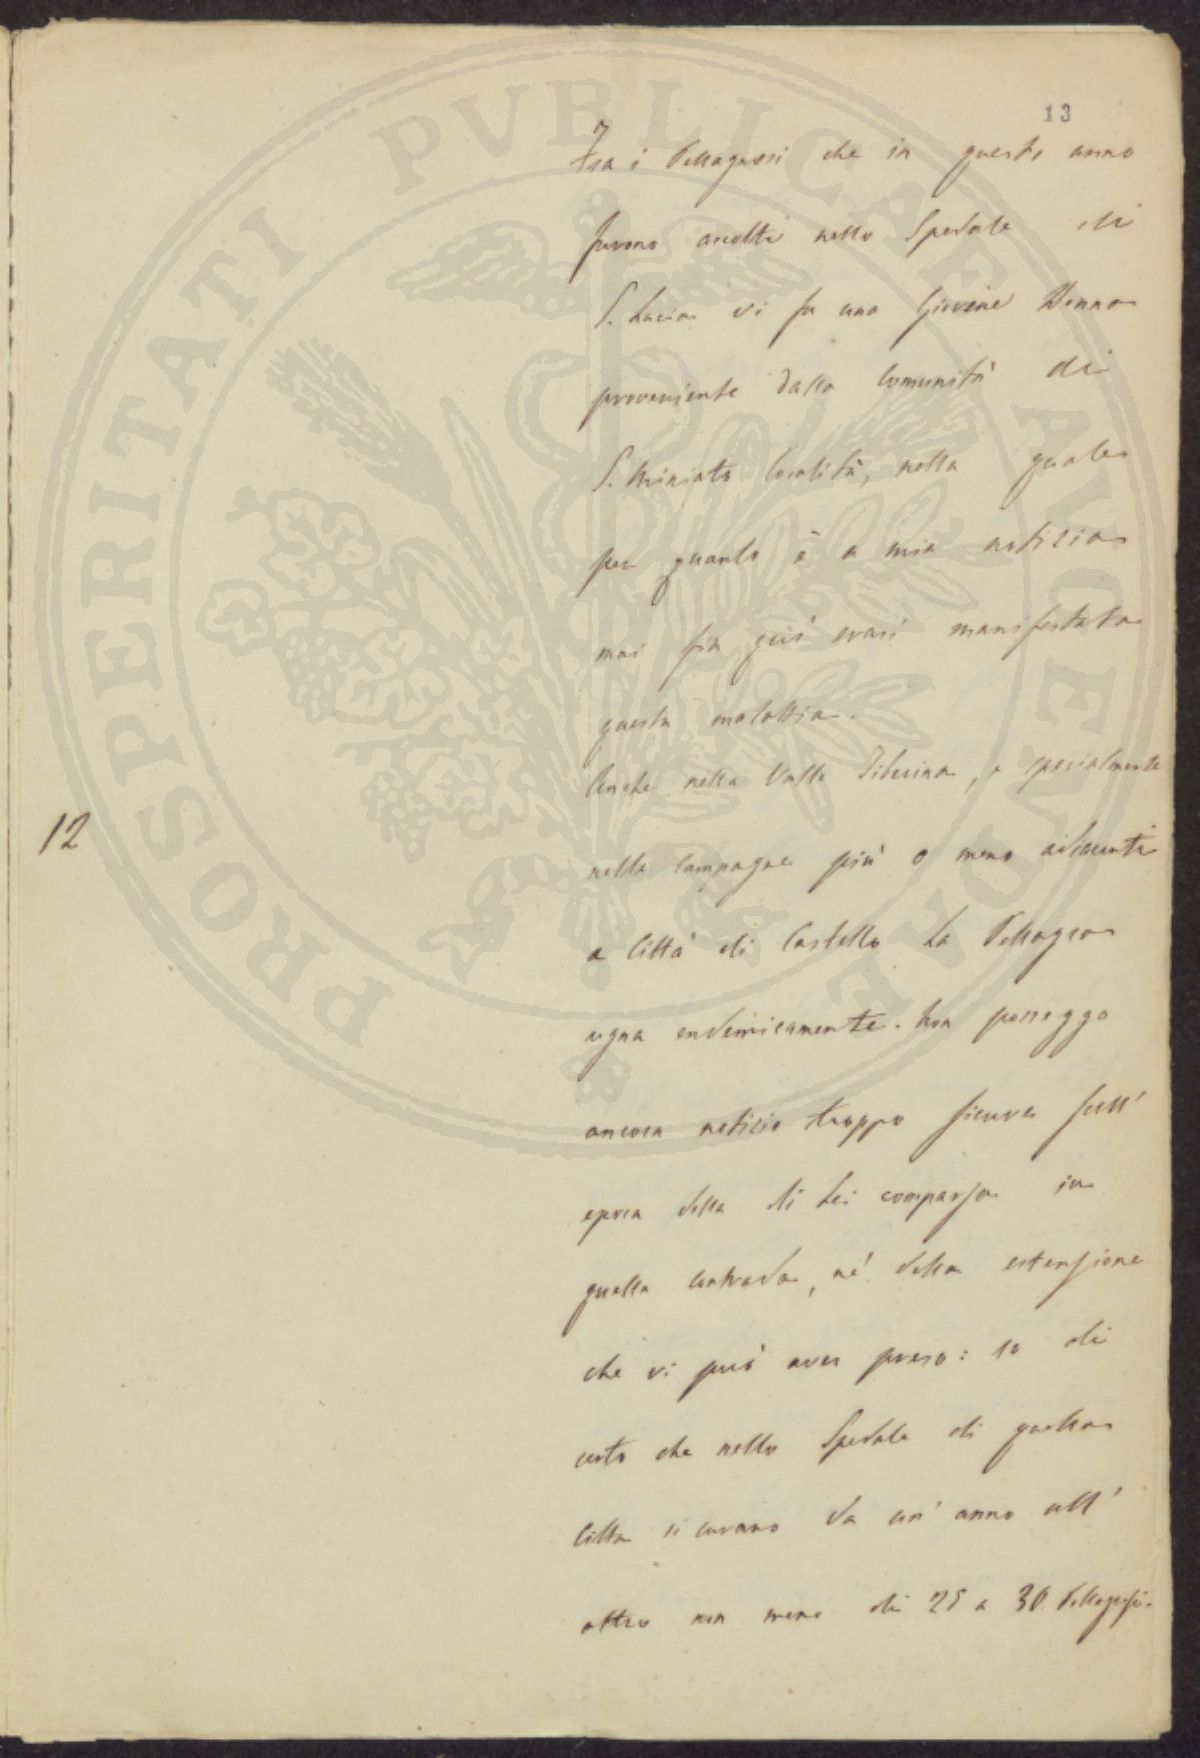 13
Fra i Pellagrosi che in questo anno
furono accolti nello Spedale di
S. Lucia vi fu una Giovine Donna
proveniente dalla Comunità di
S. Miniato località, nella quale
per quanto è a mia notizia
mai fin quì erasi manifestata
questa malattia.
Anche nella Valle Tiberina, e specialmente
12
nelle campagne più o meno adiacenti
a Città di Castello La Pellagra
regna endemicamente. Non posseggo
ancora notizie troppo sicure sull'
epoca della di Lei comparsa in
quella contrada, né della estensione
che vi può aver preso: so di
certo che nello Spedale di quella
Città si curano da un' anno all'
altro non meno di 25 a 30 Pellagrosi.
PROSPERITATI PVBLICAE AVGENDAE